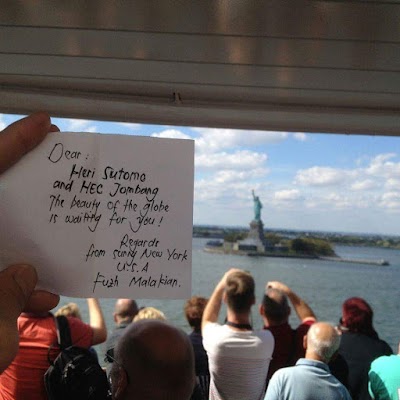 Dear :
Heri Sutomo
and HEC Jombang
The beauty of the globe
is waiting for you!
Regards
from sunny New York
U.S.A
Fuzh Malakian.